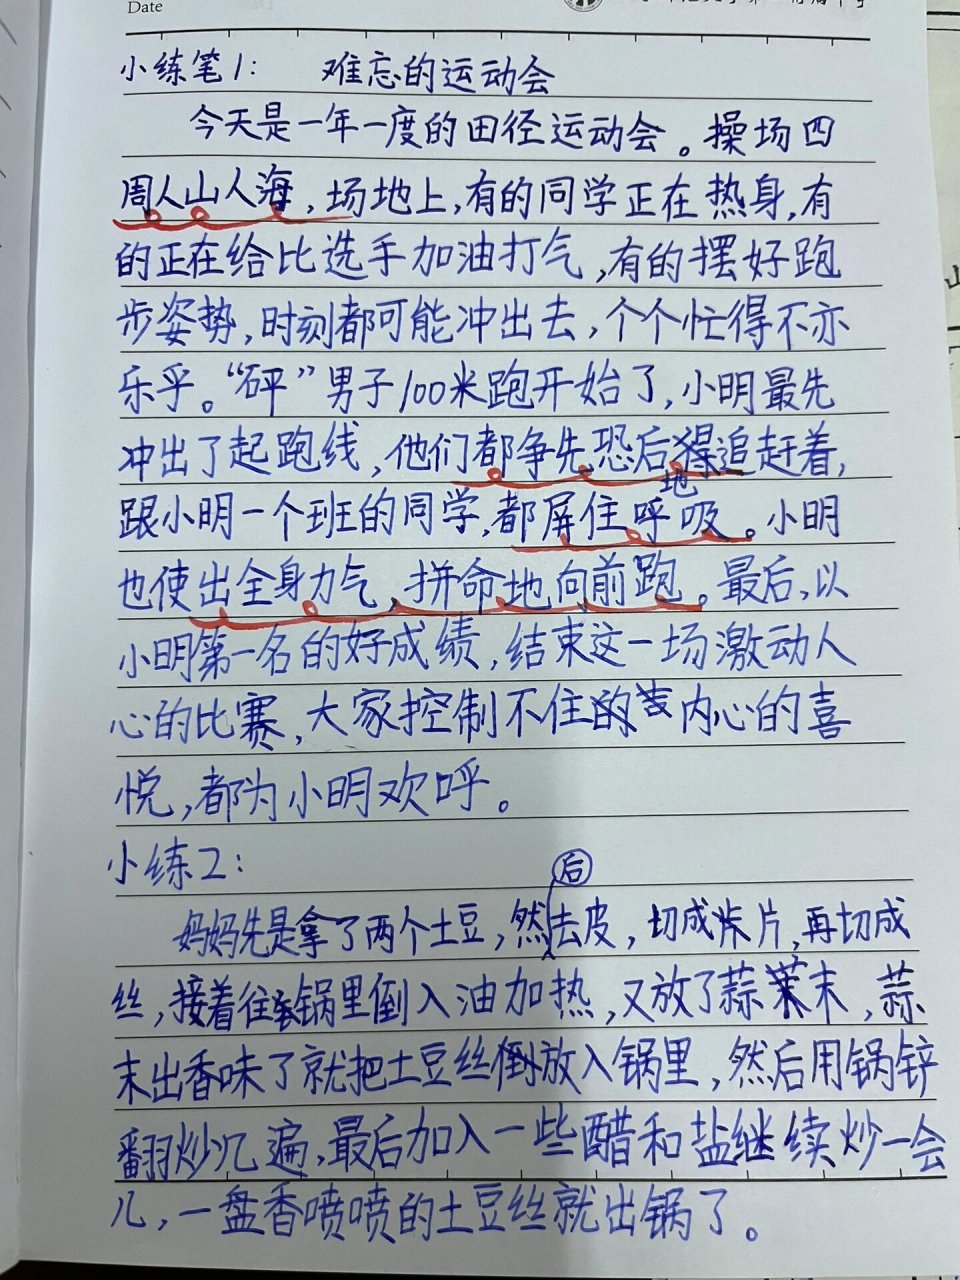 Date
小练笔1： 难忘的运动会
今天是一年一度的田径运动会。操场四
周人山人海，场地上，有的同学正在热身，有
的正在给比选手加油打气，有的摆好跑
步姿势，时刻都可能冲出去，个个忙得不亦
乐乎。“砰”男子100米跑开始了，小明最先
冲出了起跑线，他们都争先恐后地追赶着，
跟小明一个班的同学，都屏住呼吸。小明
也使出全身力气，拼命地向前跑。最后，以
小明第一名的好成绩，结束这一场激动人
心的比赛，大家控制不住内心的喜
悦，都为小明欢呼。
小练2：
妈妈先是拿了两个土豆，然后去皮，切成片，再切成
丝，接着往锅里倒入油加热，又放了蒜末，蒜
末出香味了就把土豆丝放入锅里，然后用锅铲
翻炒几遍，最后加入一些醋和盐继续炒一会
儿，一盘香喷喷的土豆丝就出锅了。